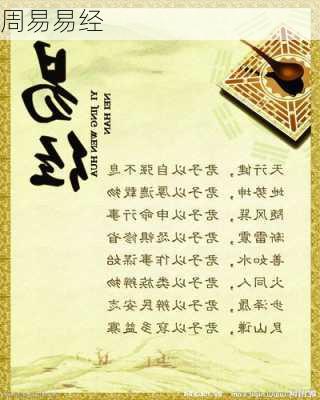 周易易经
易经
NEI HAN
YI JING WEN HUA
天行健，君子以自强不息
地势坤，君子以厚德载物
随风巽，君子以申命行事
渐雷震，君子以恐惧修省
善如水，君子以作事谋始
火同人，君子以类族辨物
步泽履，君子以辨民安志
艮山谦，君子以裒多益寡